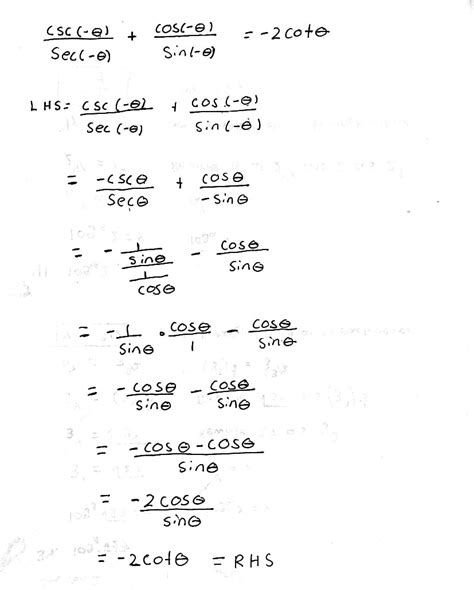 csc(-θ)/sec(-θ) + cos(-θ)/sin(-θ) = -2cotθ
LHS = csc(-θ)/sec(-θ) + cos(-θ)/sin(-θ)
= -cscθ/secθ + cosθ/-sinθ
= - (1/sinθ)/(1/cosθ) - cosθ/sinθ
= -1/sinθ · cosθ/1 - cosθ/sinθ
= -cosθ/sinθ - cosθ/sinθ
= -cosθ-cosθ/sinθ
= -2cosθ/sinθ
= -2cotθ = RHS